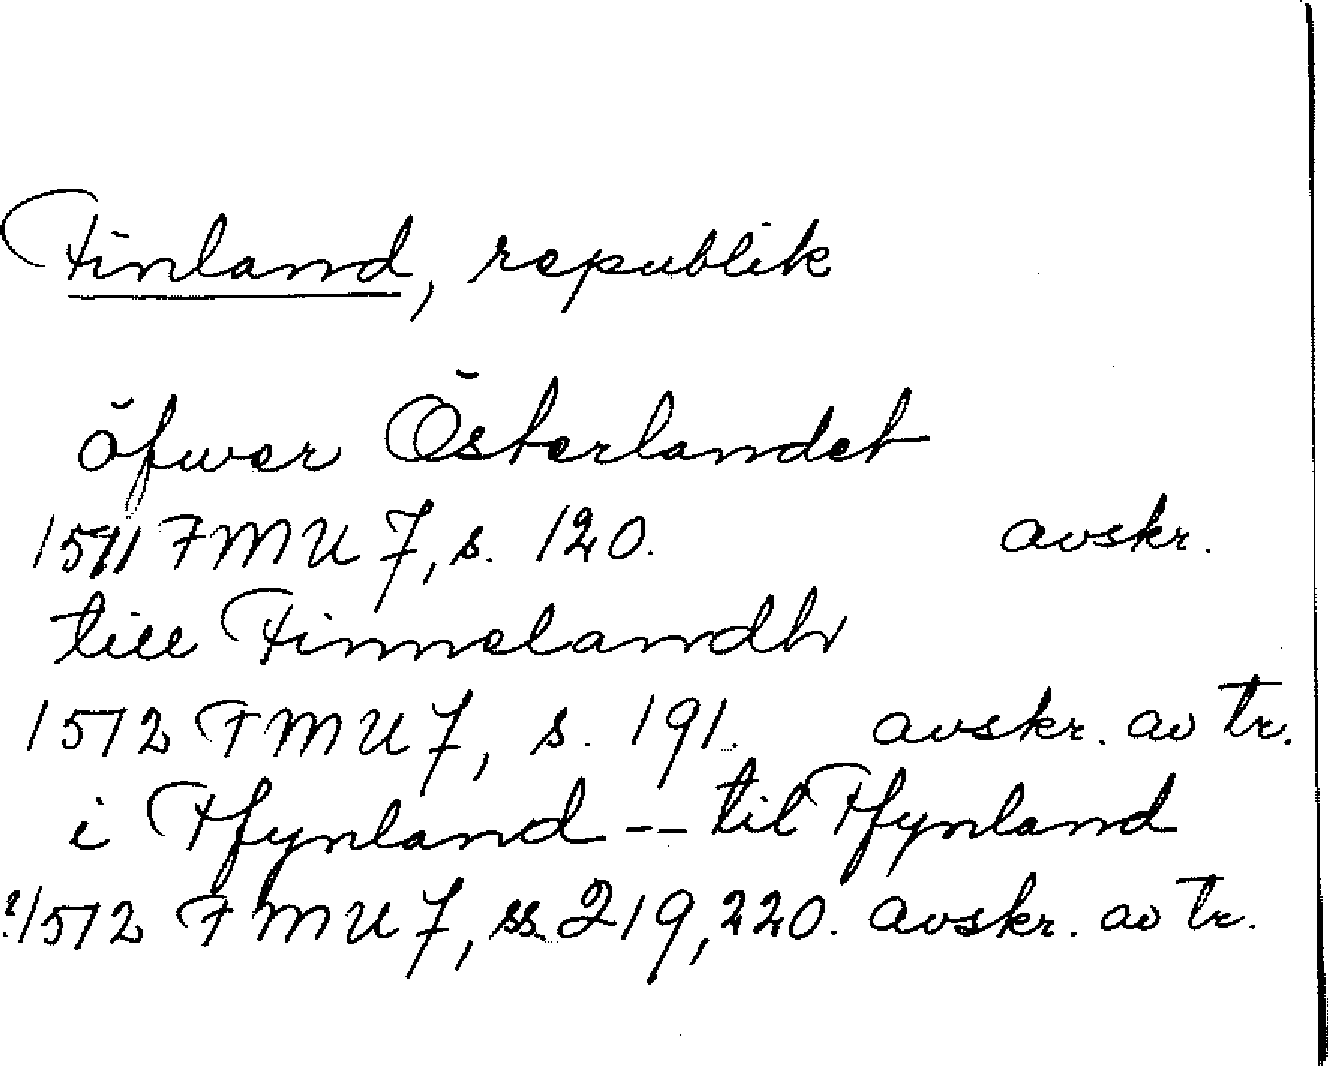 Finland, republik
öfwer Österlandet
1511 FMU 7, s. 120. avskr.
till Finnelandh
1512 FMU 7, s. 191. avskr. av tr.
i Ffynland -- til Ffynland
?/1512 FMU 7, ss. 219, 220. avskr. av tr.